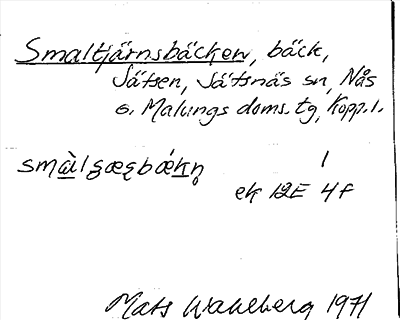 Smaltjärnsbäcken, bäck,
Sätsen, Sätsnäs sn, Nås
o. Malungs doms. tg, Kopp. l.
smàlʂæʂbækn̥ 1
ek 12E 4f
Mats Wahlberg 1971